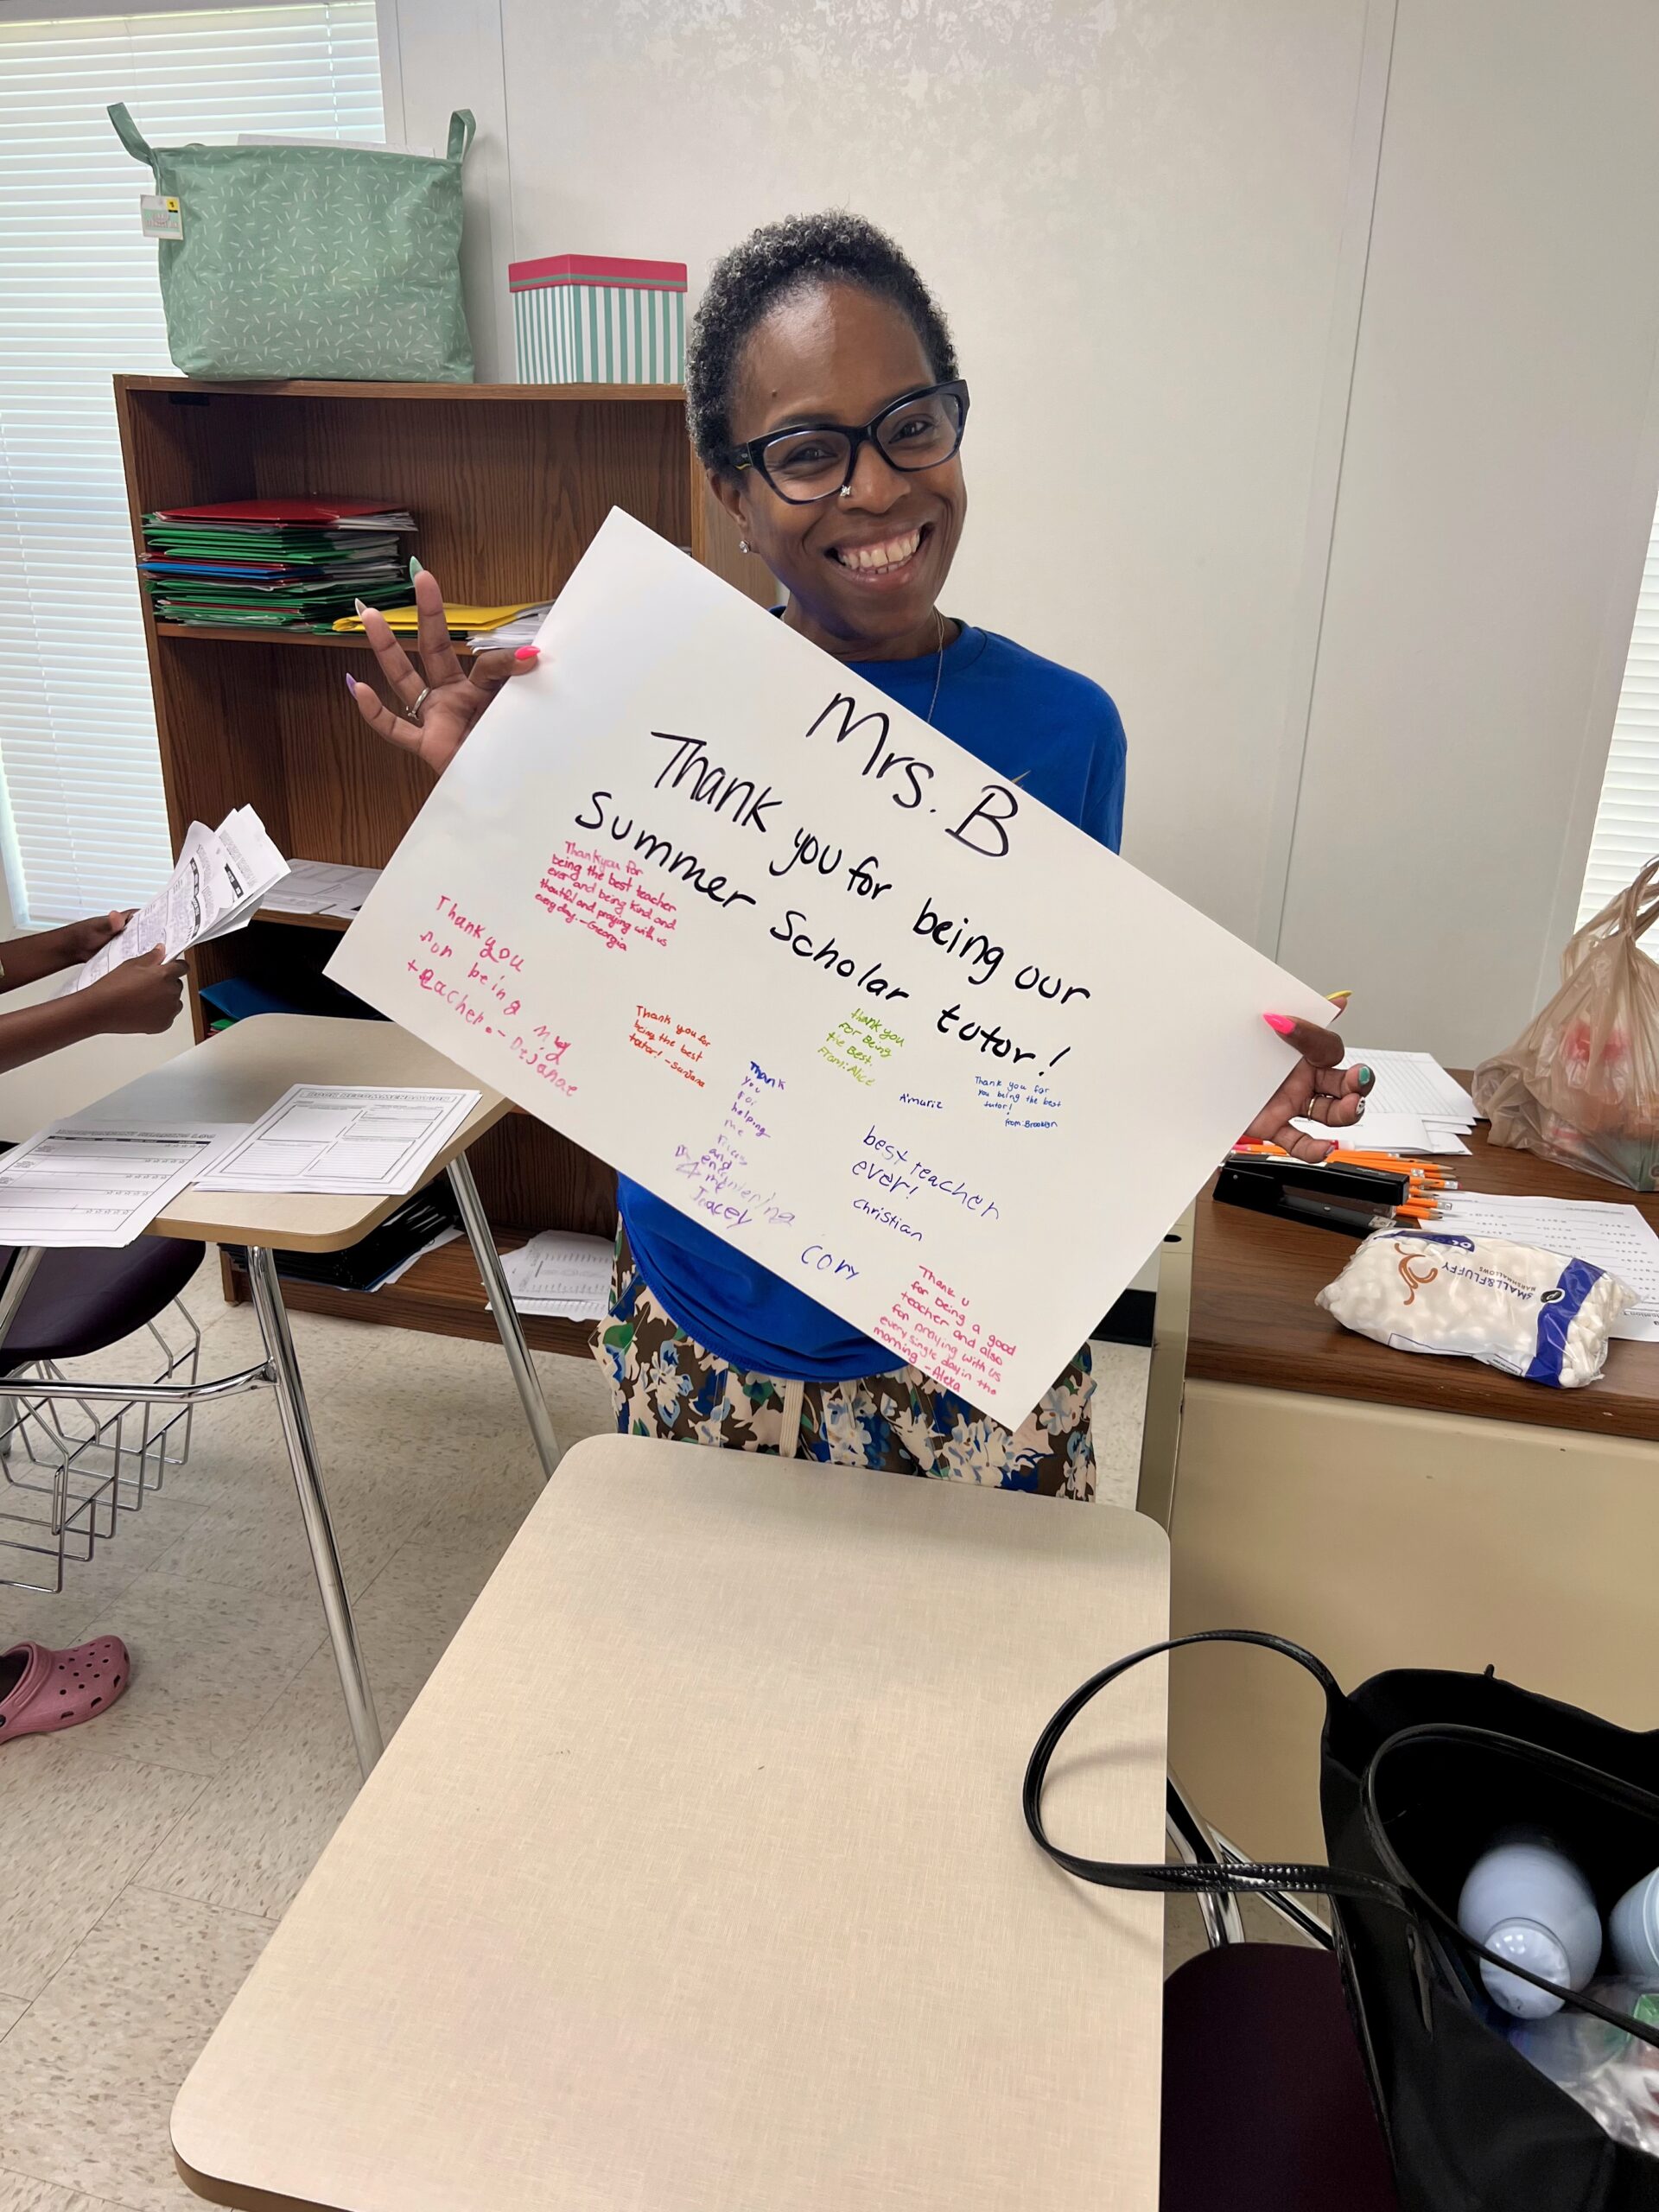 Mrs. B
Thank you for being our
Summer Scholar tutor!
Thankyou for
being the best teacher
ever and being kind and
thoutful and praying with us
every day. -Georgia
Thank you
for being my
teacher. - Dejanae
Thank you for
being the best
tutor! -Sanjana
Thank
you
for
helping
me
and
me
Tracey
thank you
for Being
the Best.
From: Alice
A'murie
Thank you for
you being the best
tutor!
from: Brooklyn
best teacher
ever!
Christian
Cory
Thank u
for being a good
teacher and also
for praying with us
every single day in the
morning -Alexa
SMALL&FLUFFY
MARSHMALLOWS